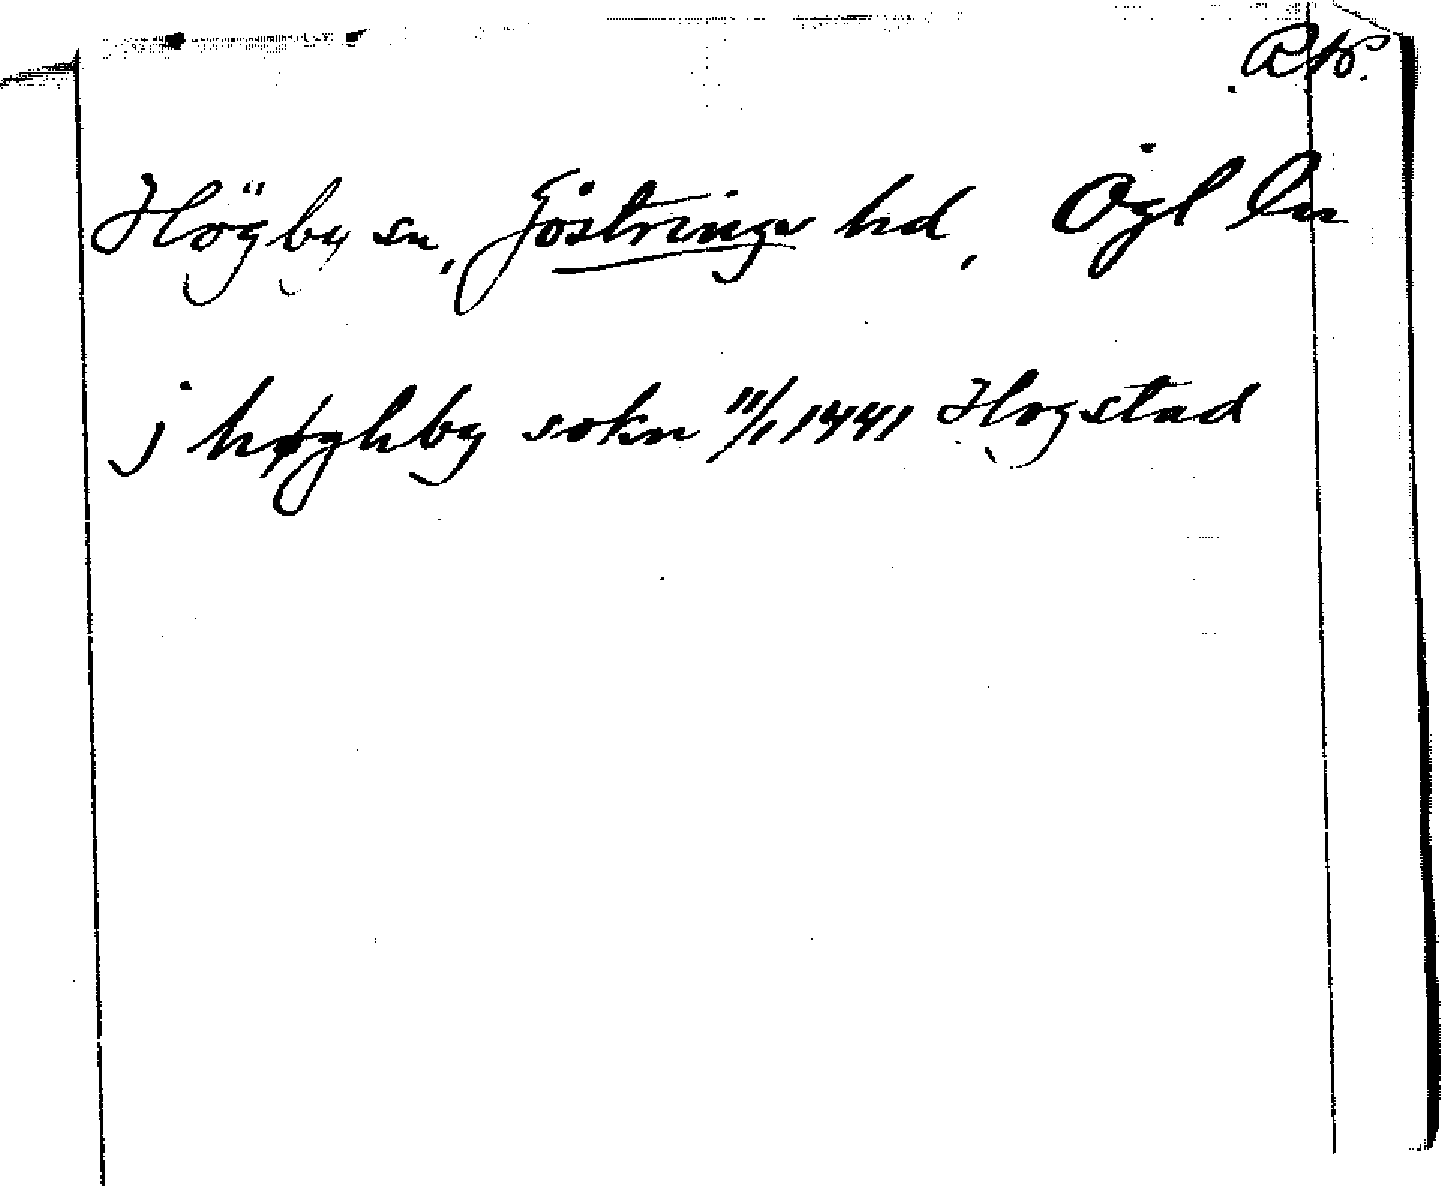 Högby sn, Göstrings hd, Ögl ln
j høghby sokn 11/1 1441 Hogstad